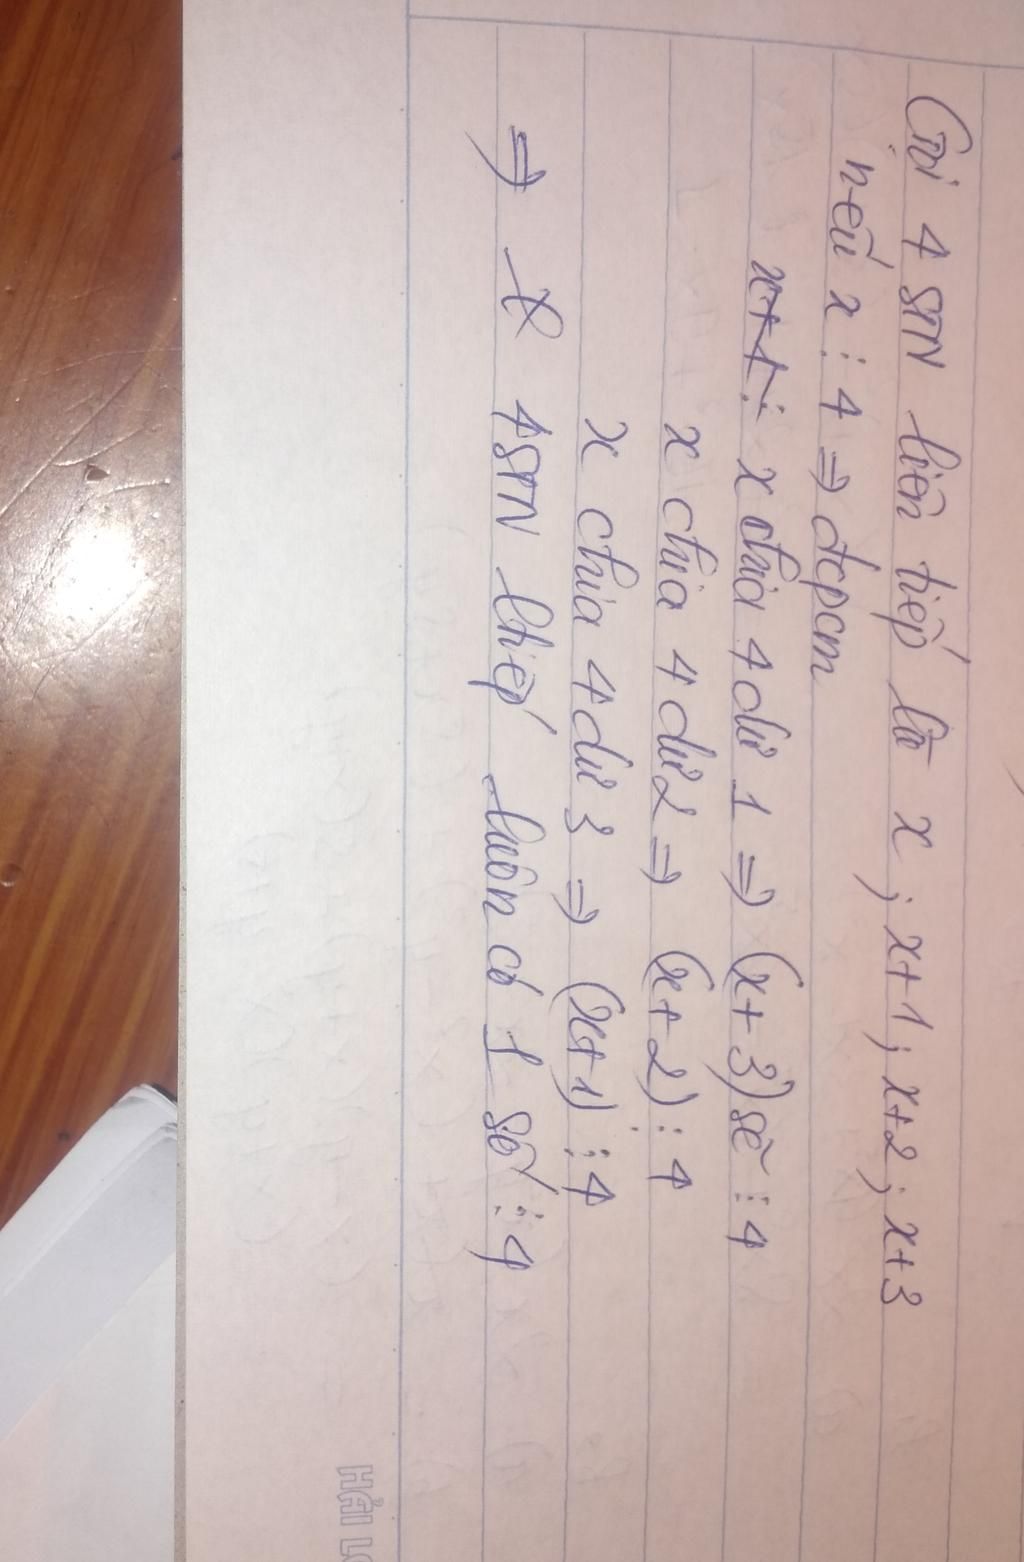 Gọi 4 STN liên tiếp là x ; x+1 ; x+2 ; x+3
nếu x ⋮ 4 ⇒ đcpcm
x chia 4 dư 1 ⇒ (x+3) sẽ ⋮ 4
x chia 4 dư 2 ⇒ (x+2) ⋮ 4
x chia 4 dư 3 ⇒ (x+1) ⋮ 4
⇒ 4 STN ltiếp luôn có 1 số ⋮ 4
HẢI